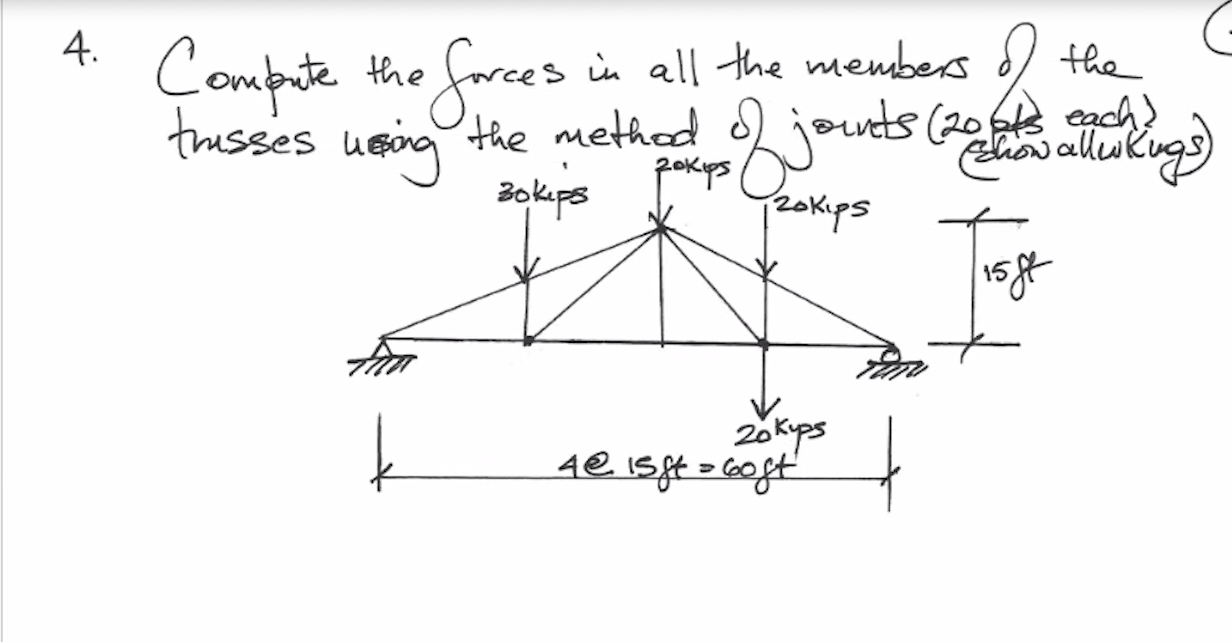 4. Compute the forces in all the members of the
trusses using the method of joints (20 pts each)
(show all wkings)
30kips
20kips
20kips
15ft
20kips
4@ 15ft = 60ft